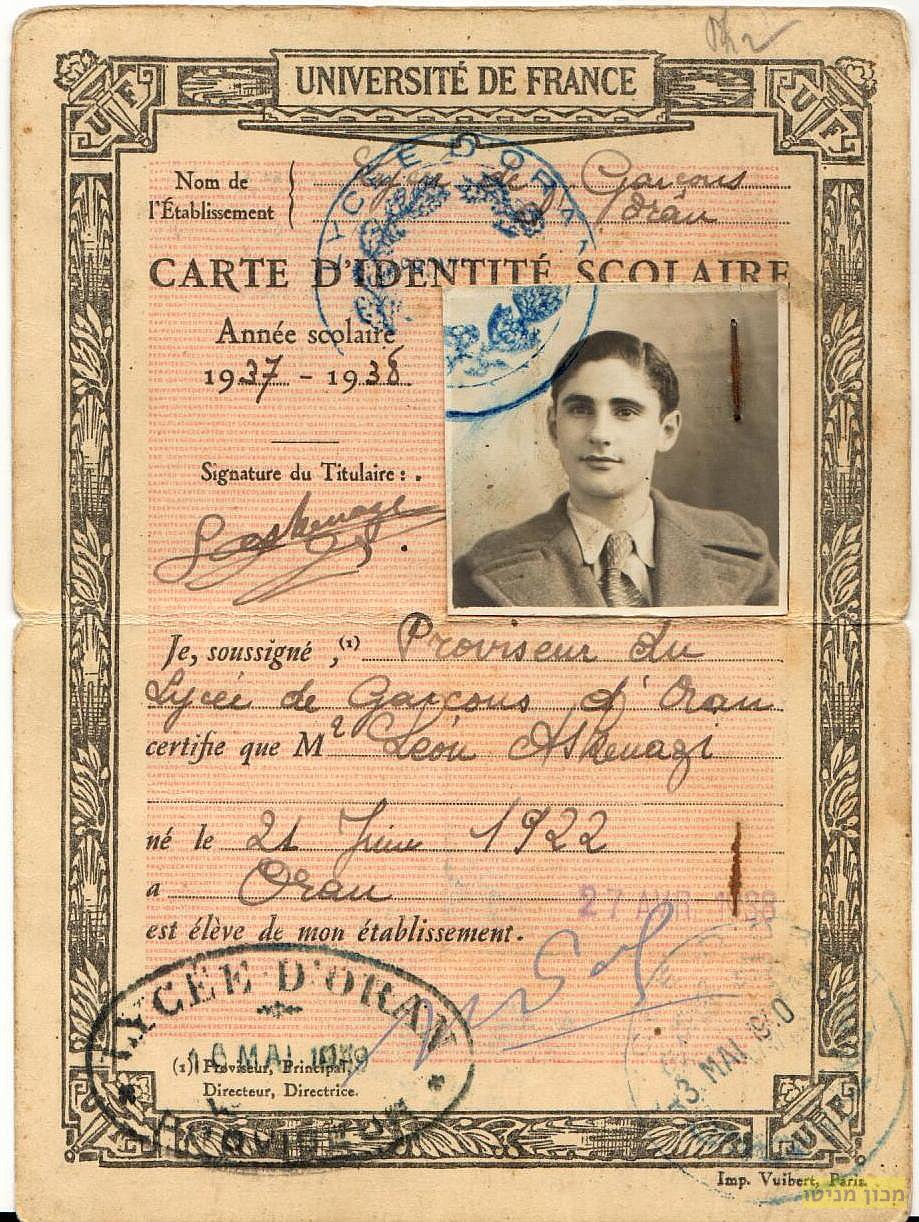 UNIVERSITÉ DE FRANCE
UF
UF
Nom de l'Établissement
Lycée de Garçons
Oran
LYCÉE D'ORAN
CARTE D'IDENTITÉ SCOLAIRE
Année scolaire
1937 - 1938
Signature du Titulaire :
LAskenazi
Je, soussigné, (1) Proviseur du
Lycée de Garçons d'Oran
certifie que Mr Léon Askenazi
né le 21 Juin 1922
a Oran
27 AVR. 1938
est élève de mon établissement.
LYCÉE D'ORAN
16 MAI 1939
3 MAI 1940
(1) Proviseur, Principal,
Directeur, Directrice.
UF
UF
Imp. Vuibert, Paris.
מכון מניטו